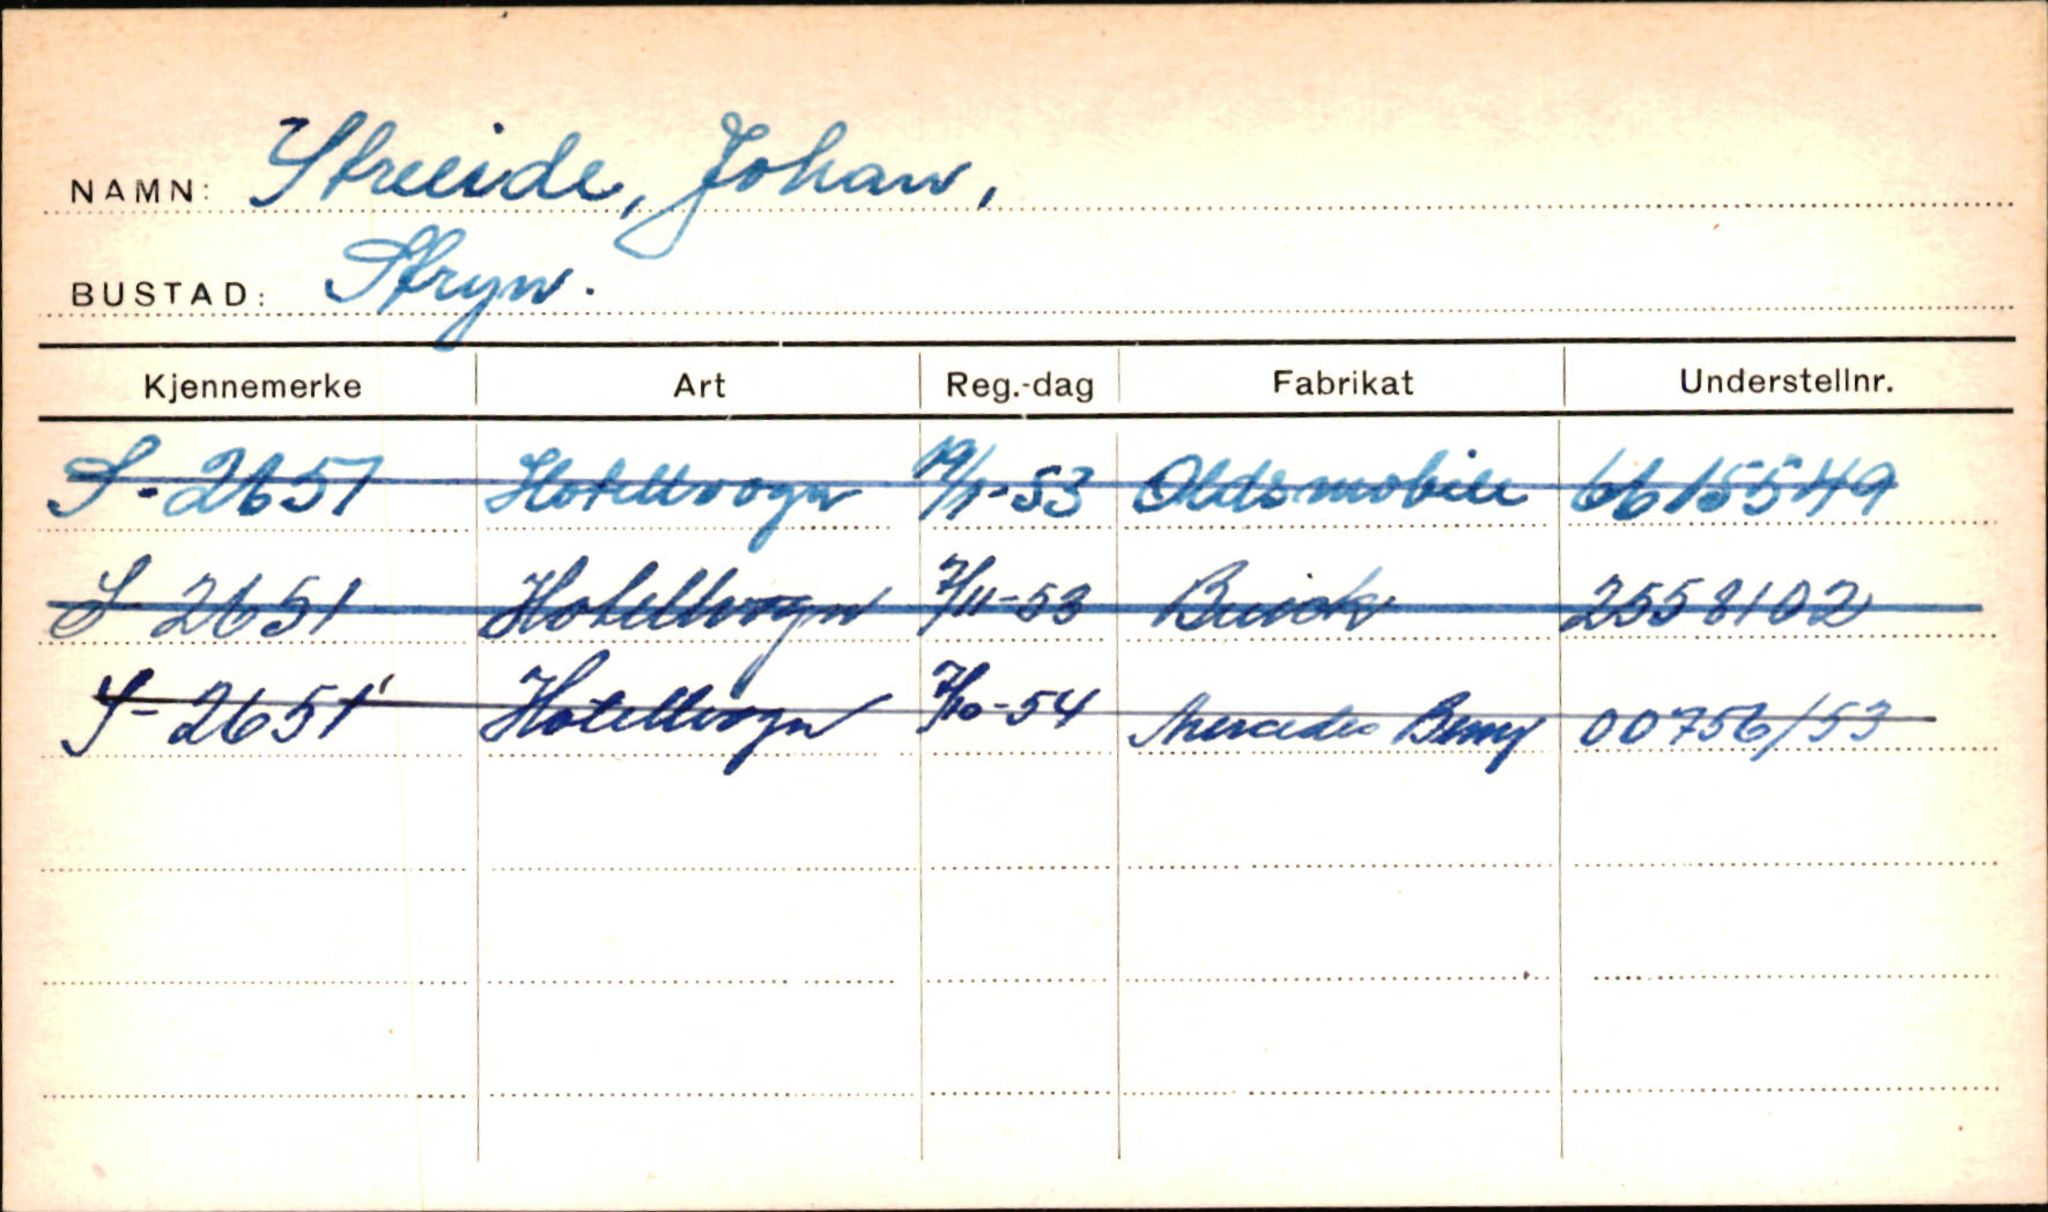 NAMN: Streeide, Johan,
BUSTAD: Stryn.
Kjennemerke Art Reg.-dag Fabrikat Understellnr.
S-2651 Hotellvogn 19/1-53 Oldsmobile 6615549
S-2651 Hotellvogn 7/11-53 Buick 2558102
S-2651 Hotellvogn 7/10-54 Mercedes Benz 00756/53